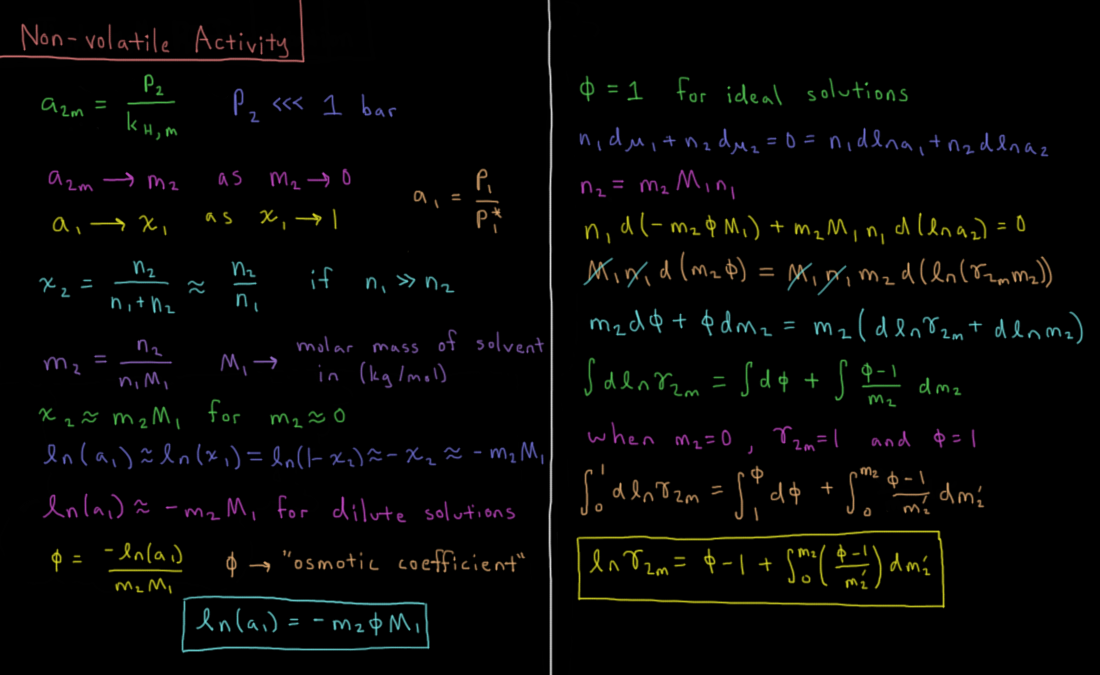 Non-volatile Activity
a₂ₘ = P₂ / k_H,m    P₂ <<< 1 bar
a₂ₘ → m₂ as m₂ → 0
a₁ → x₁ as x₁ → 1    a₁ = P₁ / P₁*
x₂ = n₂ / (n₁ + n₂) ≈ n₂ / n₁ if n₁ >> n₂
m₂ = n₂ / (n₁M₁)    M₁ → molar mass of solvent
in (kg/mol)
x₂ ≈ m₂M₁ for m₂ ≈ 0
ln(a₁) ≈ ln(x₁) = ln(1-x₂) ≈ -x₂ ≈ -m₂M₁
ln(a₁) ≈ -m₂M₁ for dilute solutions
ϕ = -ln(a₁) / (m₂M₁)    ϕ → "osmotic coefficient"
ln(a₁) = -m₂ϕM₁
ϕ = 1 for ideal solutions
n₁dμ₁ + n₂dμ₂ = 0 = n₁dlna₁ + n₂dlna₂
n₂ = m₂M₁n₁
n₁d(-m₂ϕM₁) + m₂M₁n₁d(lna₂) = 0
M₁n₁d(m₂ϕ) = M₁n₁m₂d(ln(γ₂ₘm₂))
m₂dϕ + ϕdm₂ = m₂(dlnγ₂ₘ + dlnm₂)
∫dlnγ₂ₘ = ∫dϕ + ∫ (ϕ-1)/m₂ dm₂
when m₂=0, γ₂ₘ=1 and ϕ=1
∫₀¹ dlnγ₂ₘ = ∫₁^ϕ dϕ + ∫₀^m₂ (ϕ-1)/m₂' dm₂'
lnγ₂ₘ = ϕ-1 + ∫₀^m₂ ((ϕ-1)/m₂') dm₂'